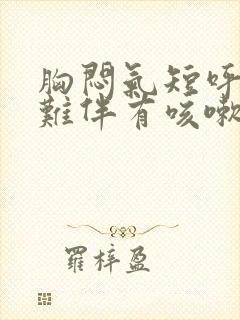 胸悶氣短呼
難伴有咳嗽
羅梓盈